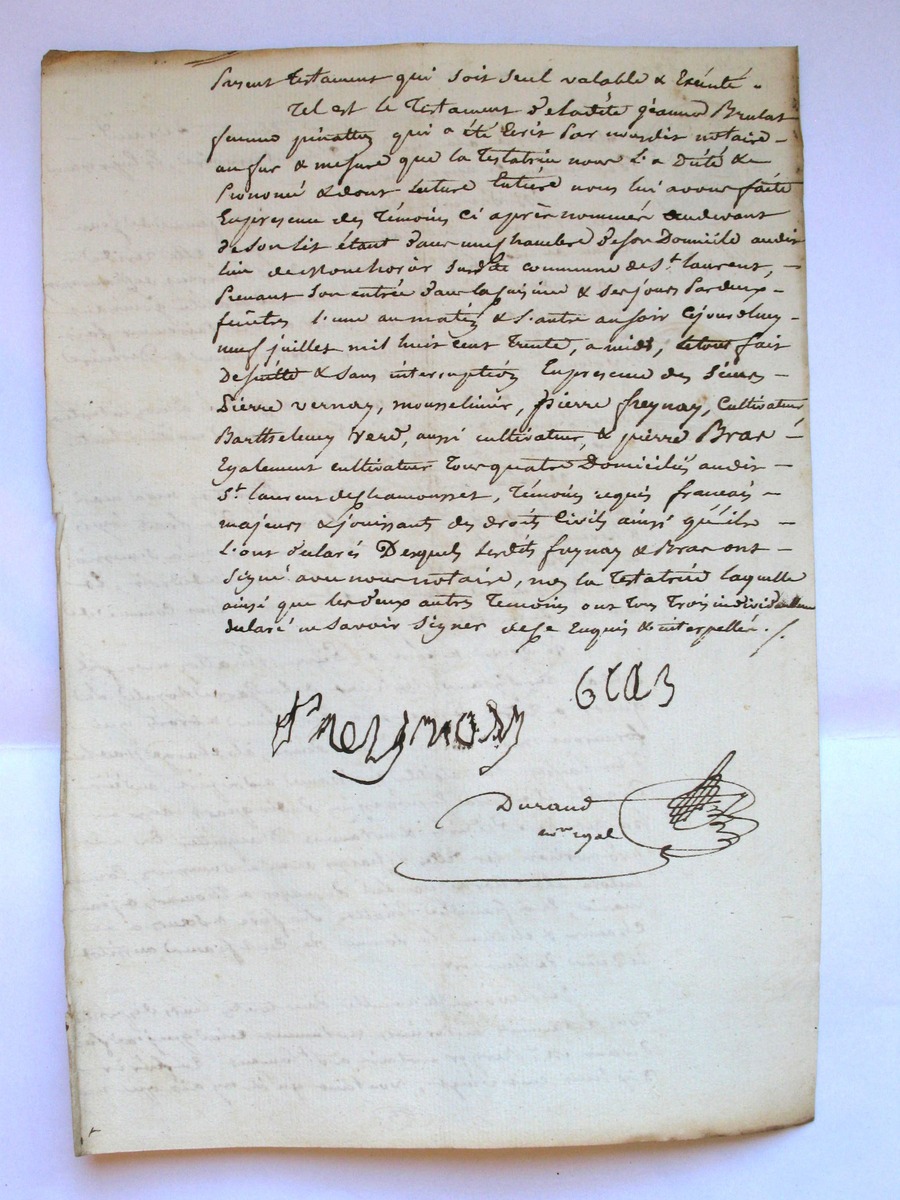 présent testament qui soit seul valable & exécuté.
Tel est le testament de ladite jéanne Brulas
femme pinattez qui a été écrit par nousdit notaire
au fur & mesure que la testatrice nous l'a dicté &
prononcé & dont lecture entière nous lui avons faite
En présence des témoins ci après nommés audevant
de son lit étant dans une chambre de son Domicile audit
lieu de susdite commune de St laurent,
prenant son entrée dans la cuisine & ses jours par deux
fenêtres l'une au matin & l'autre au soir cejourdhuy
neuf juillet mil huit cent trente, a midi, le tout fait
de suitte & sans interruption En présence des sieurs
Pierre vernay, mousselinier, pierre freynay, Cultivateur
Barthelemy Verd, aussi cultivateur, & pierre Bras
Egalement cultivateur tous quatre Domiciliés audit
St laurent de chamousset, témoins requis francais
majeurs & jouissants des droits Civils ainsi qu'ils
l'ont déclarés Desquels lesdits freynay & Bras ont
signé avec nous notaire, non la testatrice laquelle
ainsi que les deux autres témoins ont tous trois individuellement
déclaré ne savoir signer de ce Enquis & interpellés.
bras
Durand
nore royal